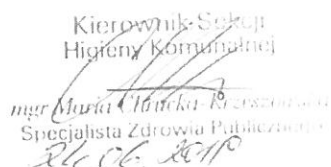 Kierownik Sekcji
Higieny Komunalnej
mgr Maria
Specjalista Zdrowia Publicznego
24. 06.